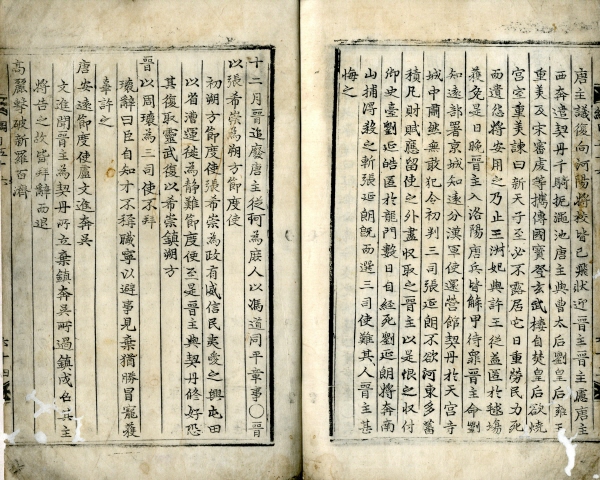 唐主議復向河陽將校皆已飛狀迎晉主晉主慮唐主
西奔遣契丹千騎扼澠池唐主與曹太后劉皇后雍王
重美及宋審虔等攜傳國寶登玄武樓自焚皇后欲燒
宮室重美諫曰新天子至必不露居它日重勞民力死
而遺怨將安用之乃止王淑妃與許王從益匿於毬場
獲免是日晚晉主入洛陽唐兵皆解甲待罪晉主命劉
知遠部署京城知遠分漢軍使還營館契丹於天宮寺
城中肅然無敢犯令初判三司張延朗不欲河東多蓄
積凡財賦應留使之外盡収取之晉主以是恨之収付
御史臺劉延皓匿於龍門數日自經死劉延朗將奔南
山捕得殺之斬張延朗旣而選三司使難其人晉主甚
悔之
十二月晉追廢唐主從珂為庶人以馮道同平章事○晉
以張希崇為朔方節度使
初朔方節度使張希崇為政有威信民夷愛之興屯田
以省漕運徙為靜難節度使至是晉主與契丹修好恐
其復取靈武復以希崇鎮朔方
晉以周瓌為三司使不拜
瓌辭曰臣自知才不稱職寧以避事見棄猶勝冒寵獲
辜許之
唐安遠節度使盧文進奔吳
文進聞晉主為契丹所立棄鎮奔吳所過鎮戍召其主
將告之故皆拜辭而退
高麗擊破新羅百濟
六十四